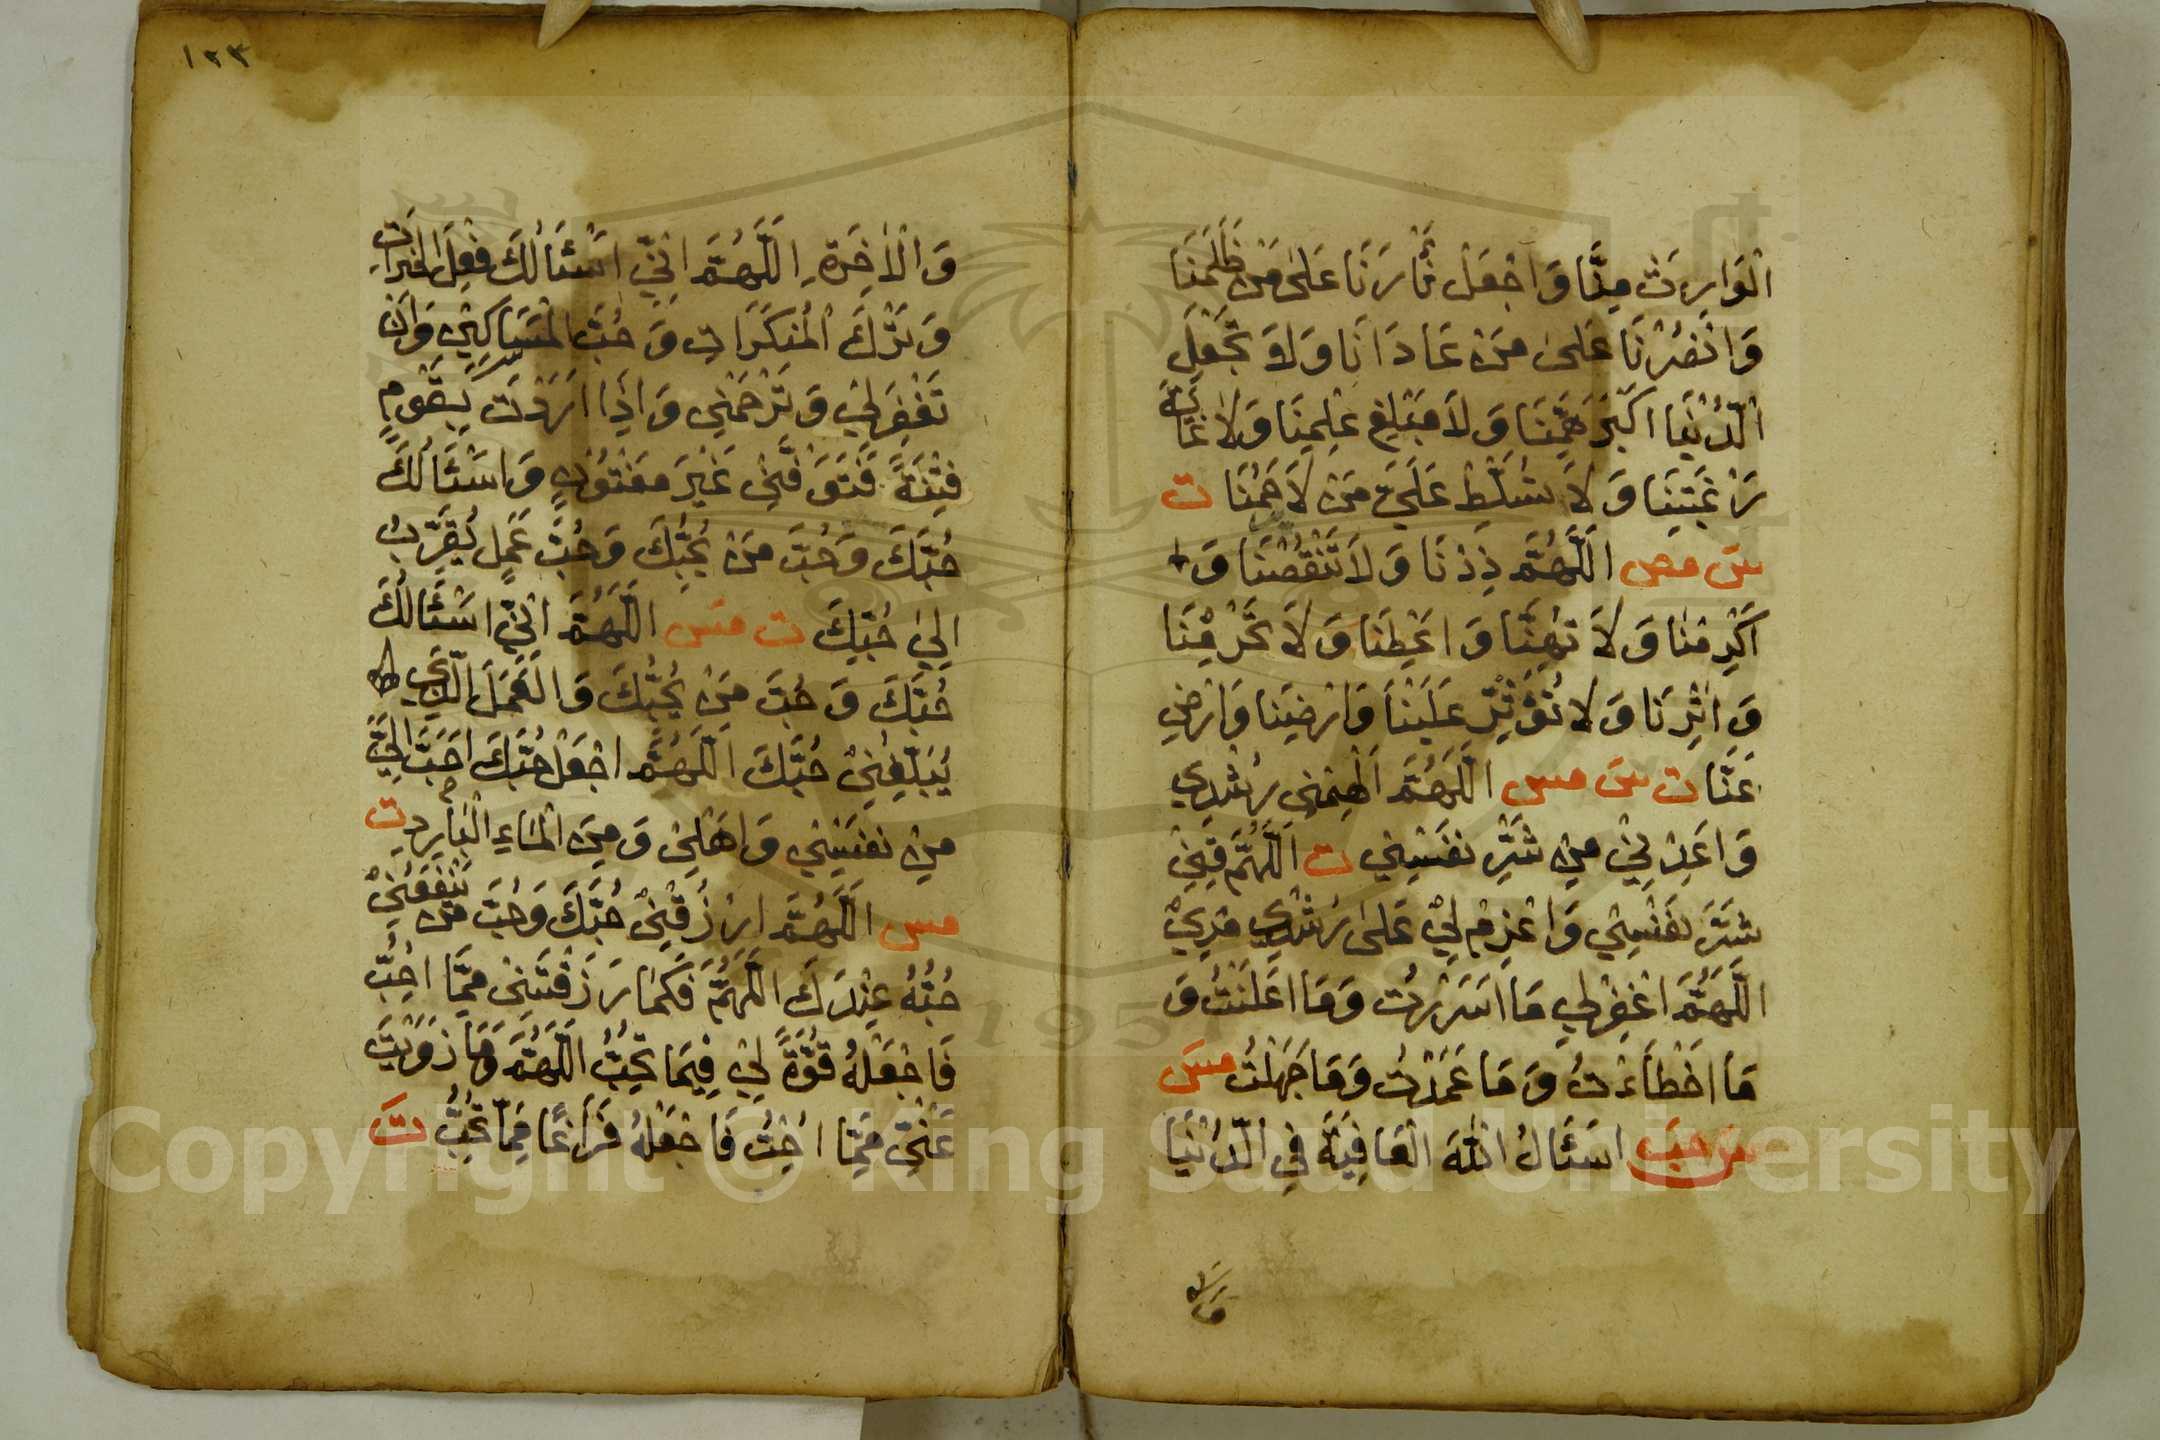 الْوَارِثَ مِنَّا وَاجْعَلْ ثَأْرَنَا عَلَى مَنْ ظَلَمَنَا
وَانْصُرْنَا عَلَى مَنْ عَادَانَا وَلَا تَجْعَلِ
الدُّنْيَا اَكْبَرَ هَمِّنَا وَلَا مَبْلَغِ عِلْمِنَا وَلَا غَايَةَ
رَغْبَتِنَا وَلَا تُسَلِّطْ عَلَيَّ مَنْ لَا يَرْحَمُنَا ت
س مص اَللَّهُمَّ زِدْنَا وَلَا تَنْقُصْنَا وَ
اَكْرِمْنَا وَلَا تُهِنَّا وَاعْطِنَا وَلَا تَحْرِمْنَا
وَاٰثِرْنَا وَلَا تُؤْثِرْ عَلَيْنَا وَارْضِنَا وَارْضِ
عَنَّا ت س مس اَللَّهُمَّ اَلْهِمْنِي رُشْدِي
وَاَعِذْنِيْ مِنْ شَرِّ نَفْسِيْ ت اَللَّهُمَّ قِنِيْ
شَرَّ نَفْسِيْ وَاعْزِمْ لِيْ عَلَى رُشْدِ اَمْرِيْ
اَللَّهُمَّ اغْفِرْلِي مَا اَسْرَرْتُ وَمَا اَعْلَنْتُ وَ
مَا اَخْطَاْتُ وَمَا عَمَدْتُ وَمَا جَهِلْتُ مس
س حب اَسْئَالُ اللهَ الْعَافِيَةَ فِي الدُّنْيَا
١٣٣
وَالْاٰخِرَةِ اَللَّهُمَّ اِنِّيْ اَسْئَالُكَ فِعْلَ الْخَيْرَاتِ
وَتَرْكَ الْمُنْكَرَاتِ وَحُبَّ الْمَسَاكِيْنِ وَاَنْ
تَغْفِرَ لِيْ وَتَرْحَمَنِي وَاِذَا اَرَدْتَ بِقَوْمٍ
فِتْنَةً فَتَوَفَّنِيْ غَيْرَ مَفْتُوْنٍ وَاَسْئَالُكَ
حُبَّكَ وَحُبَّ مَنْ يُحِبُّكَ وَحُبَّ عَمَلٍ يُقَرِّبُ
اِلٰى حُبِّكَ ت مس اَللَّهُمَّ اِنِّيْ اَسْئَالُكَ
حُبَّكَ وَحُبَّ مَنْ يُحِبُّكَ وَالْعَمَلَ الَّذِي
يُبَلِّغُنِيْ حُبَّكَ اَللَّهُمَّ اجْعَلْ حُبَّكَ اَحَبَّ اِلَيَّ
مِنْ نَفْسِيْ وَاَهْلِيْ وَمِنَ الْمَاءِ الْبَارِدِ ت
مس اَللَّهُمَّ ارْزُقْنِيْ حُبَّكَ وَحُبَّ مَنْ يَنْفَعُنِيْ
حُبُّهُ عِنْدَكَ اَللَّهُمَّ فَكَمَا رَزَقْتَنِيْ مِمَّا اُحِبُّ
فَاجْعَلْهُ قُوَّةً لِيْ فِيْمَا تُحِبُّ اَللَّهُمَّ وَمَا زَوَيْتَ
عَنِّيْ مِمَّا اُحِبُّ فَاجْعَلْهُ فَرَاغًا فِيْمَا تُحِبُّ ت
Copyright © King Saud University